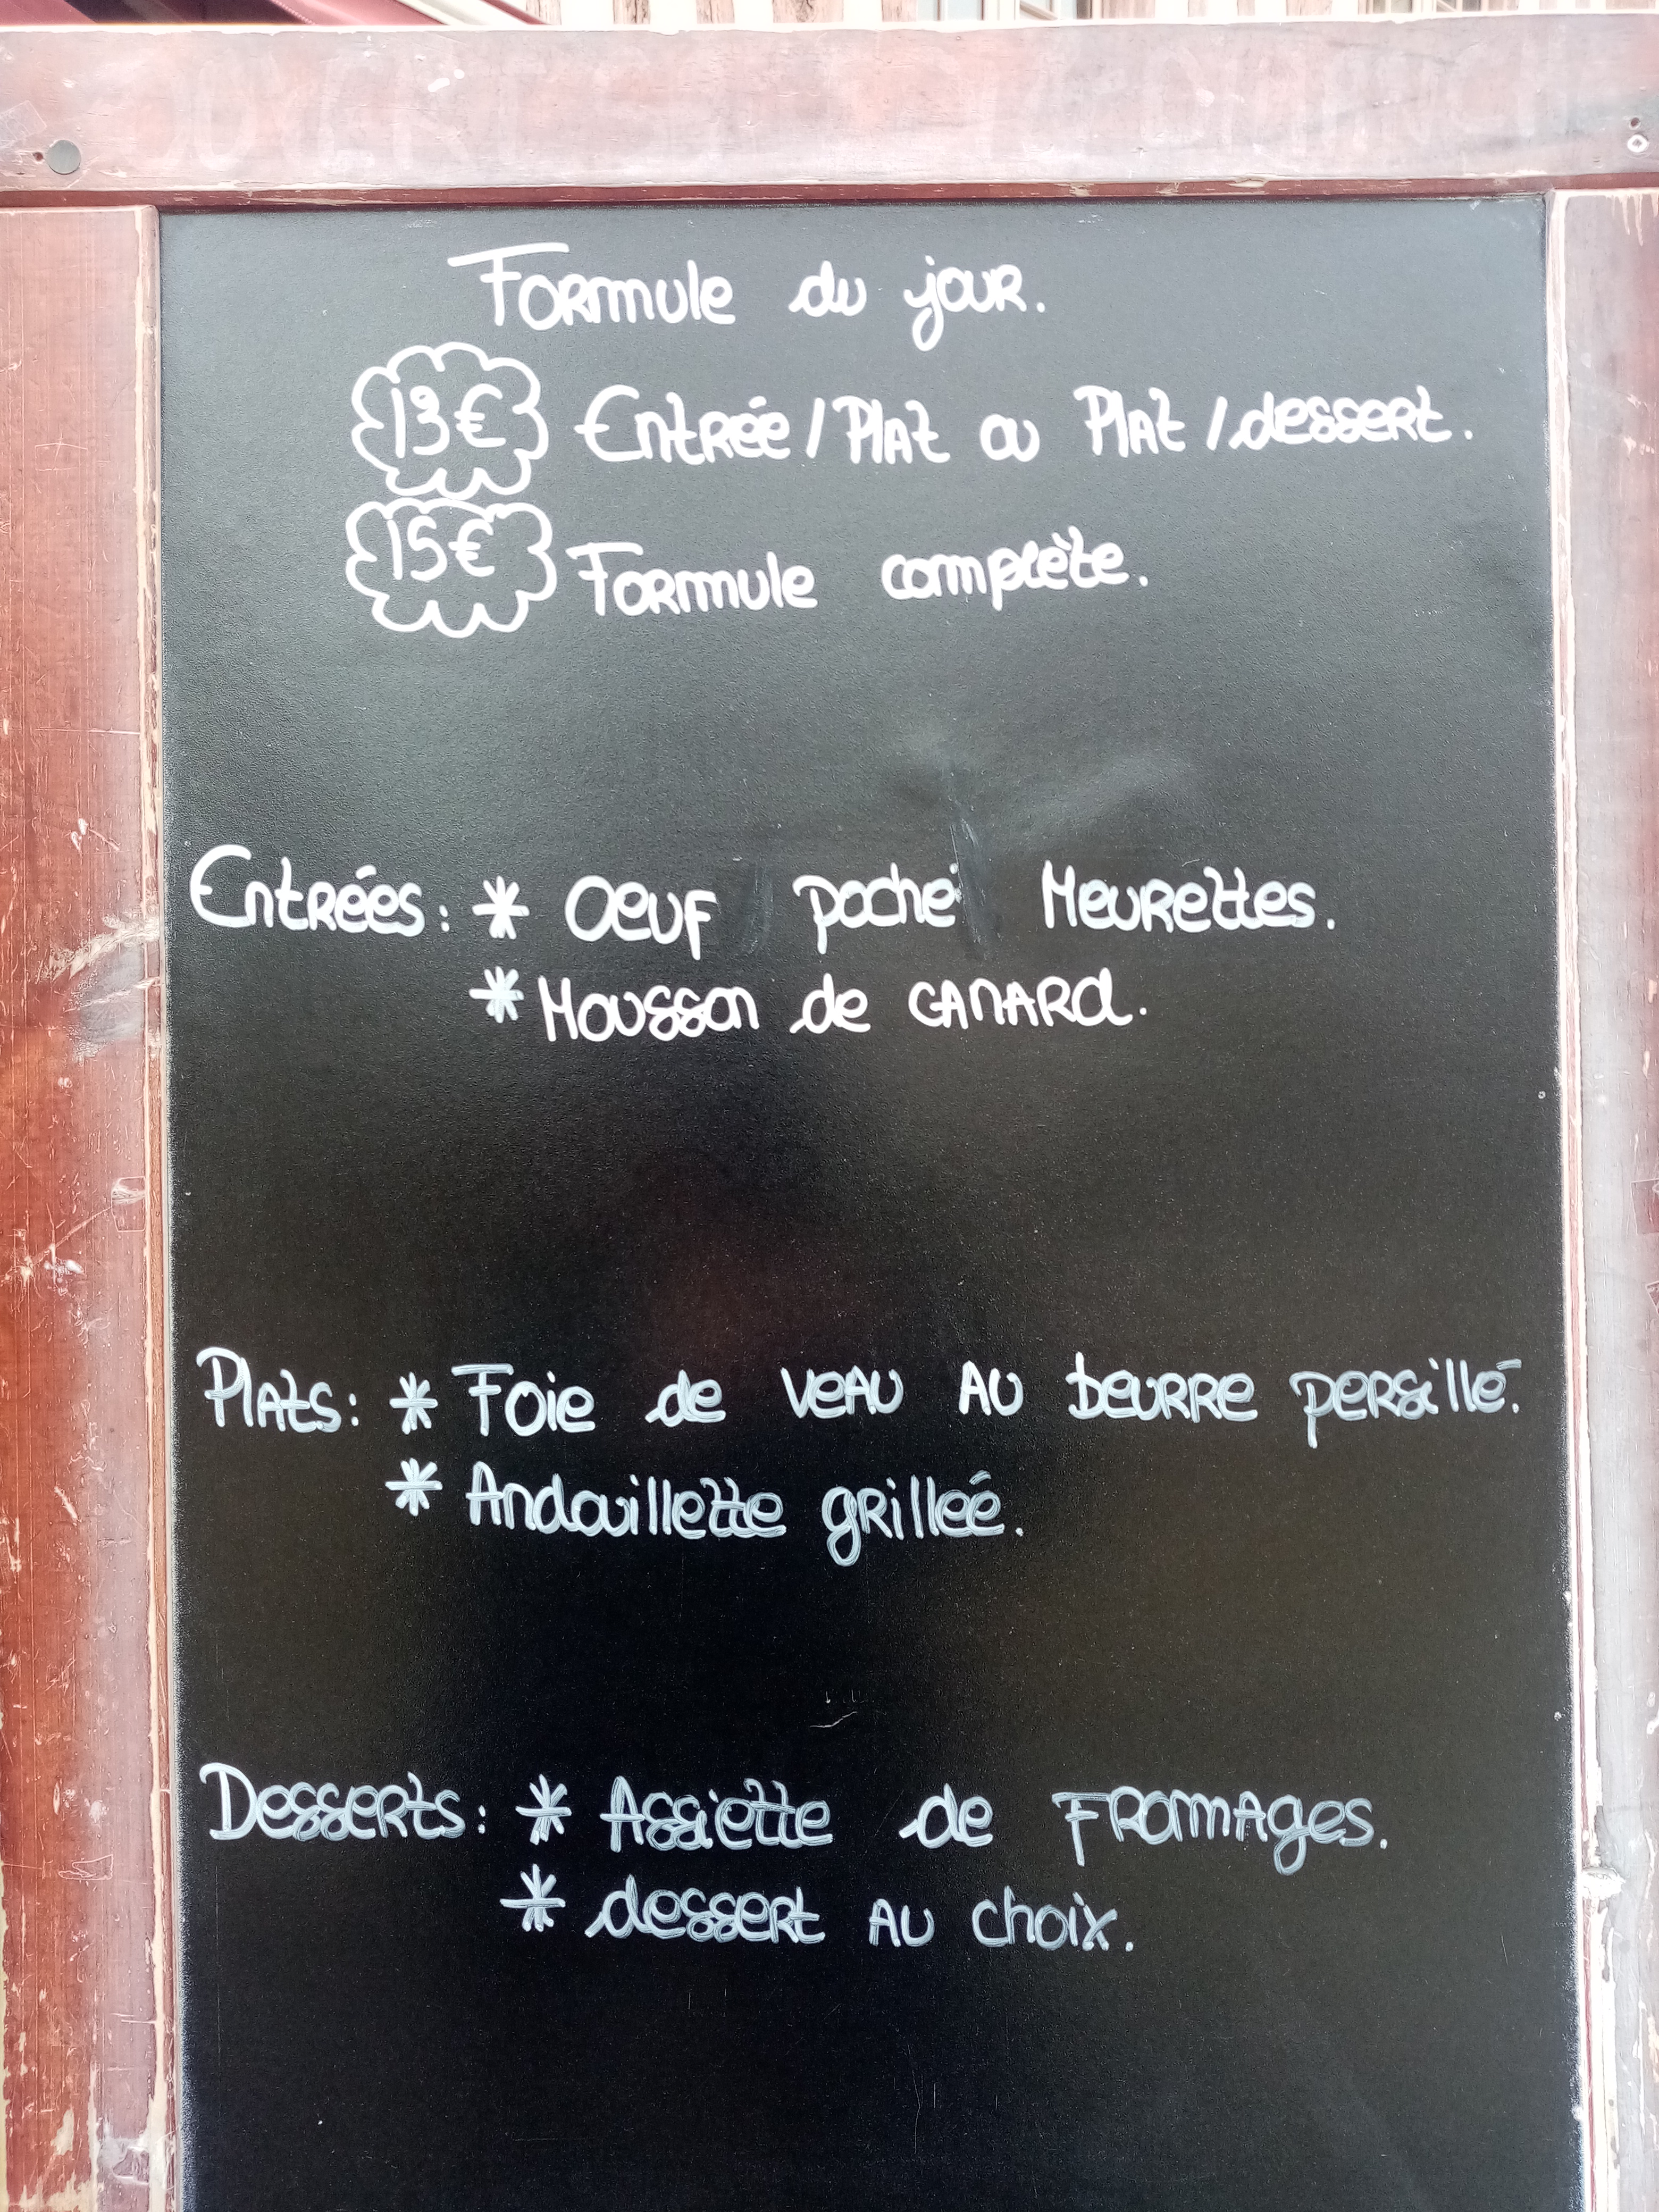 Formule du jour.
13€ Entrée/Plat ou Plat/dessert.
15€ Formule complète.
Entrées: * Oeuf poché Meurettes.
* Mousson de canard.
Plats: * Foie de veau au beurre persillé.
* Andouillette grilleé.
Desserts: * Assiette de Fromages.
* dessert au choix.